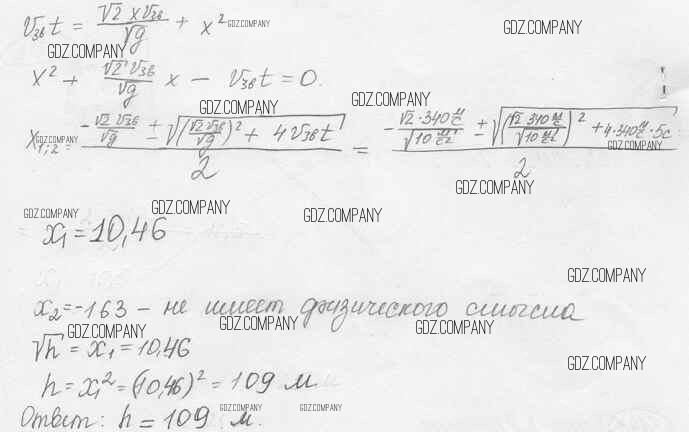 v_зв t = √2 x v_зв / √g + x² GDZ.COMPANY
GDZ.COMPANY
GDZ.COMPANY
x² + √2 v_зв / √g x − v_зв t = 0.
GDZ.COMPANY GDZ.COMPANY
x₁,₂ = (−√2 v_зв / √g ± √((√2 v_зв / √g)² + 4 v_зв t)) / 2 = (−√2·340 м/с / √10 м/с² ± √((√2 340 м/с / √10 м/с²)² + 4·340 м/с·5с)) / 2
GDZ.COMPANY GDZ.COMPANY
GDZ.COMPANY
GDZ.COMPANY GDZ.COMPANY GDZ.COMPANY
x₁ = 10,46
GDZ.COMPANY
x₂ = -163 – не имеет физического смысла
GDZ.COMPANY GDZ.COMPANY GDZ.COMPANY
√h = x₁ = 10,46
GDZ.COMPANY
h = x₁² = (10,46)² = 109 м
GDZ.COMPANY GDZ.COMPANY
Ответ: h = 109 м.